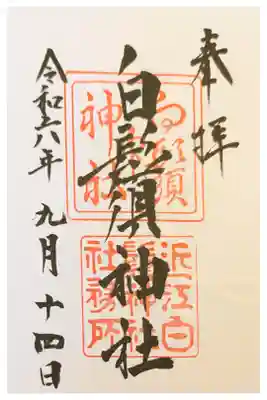 奉拝
白鬚神社
白鬚神社
近江白鬚神社社務所
令和六年九月十四日